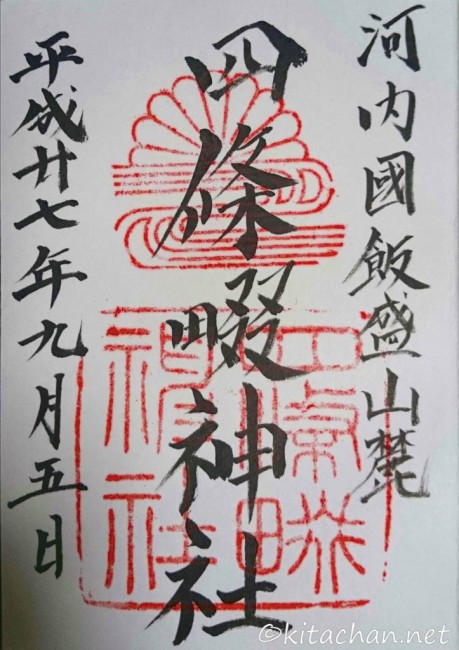 河内國飯盛山麓
四條畷神社
平成廿七年九月五日
©kitachan.net